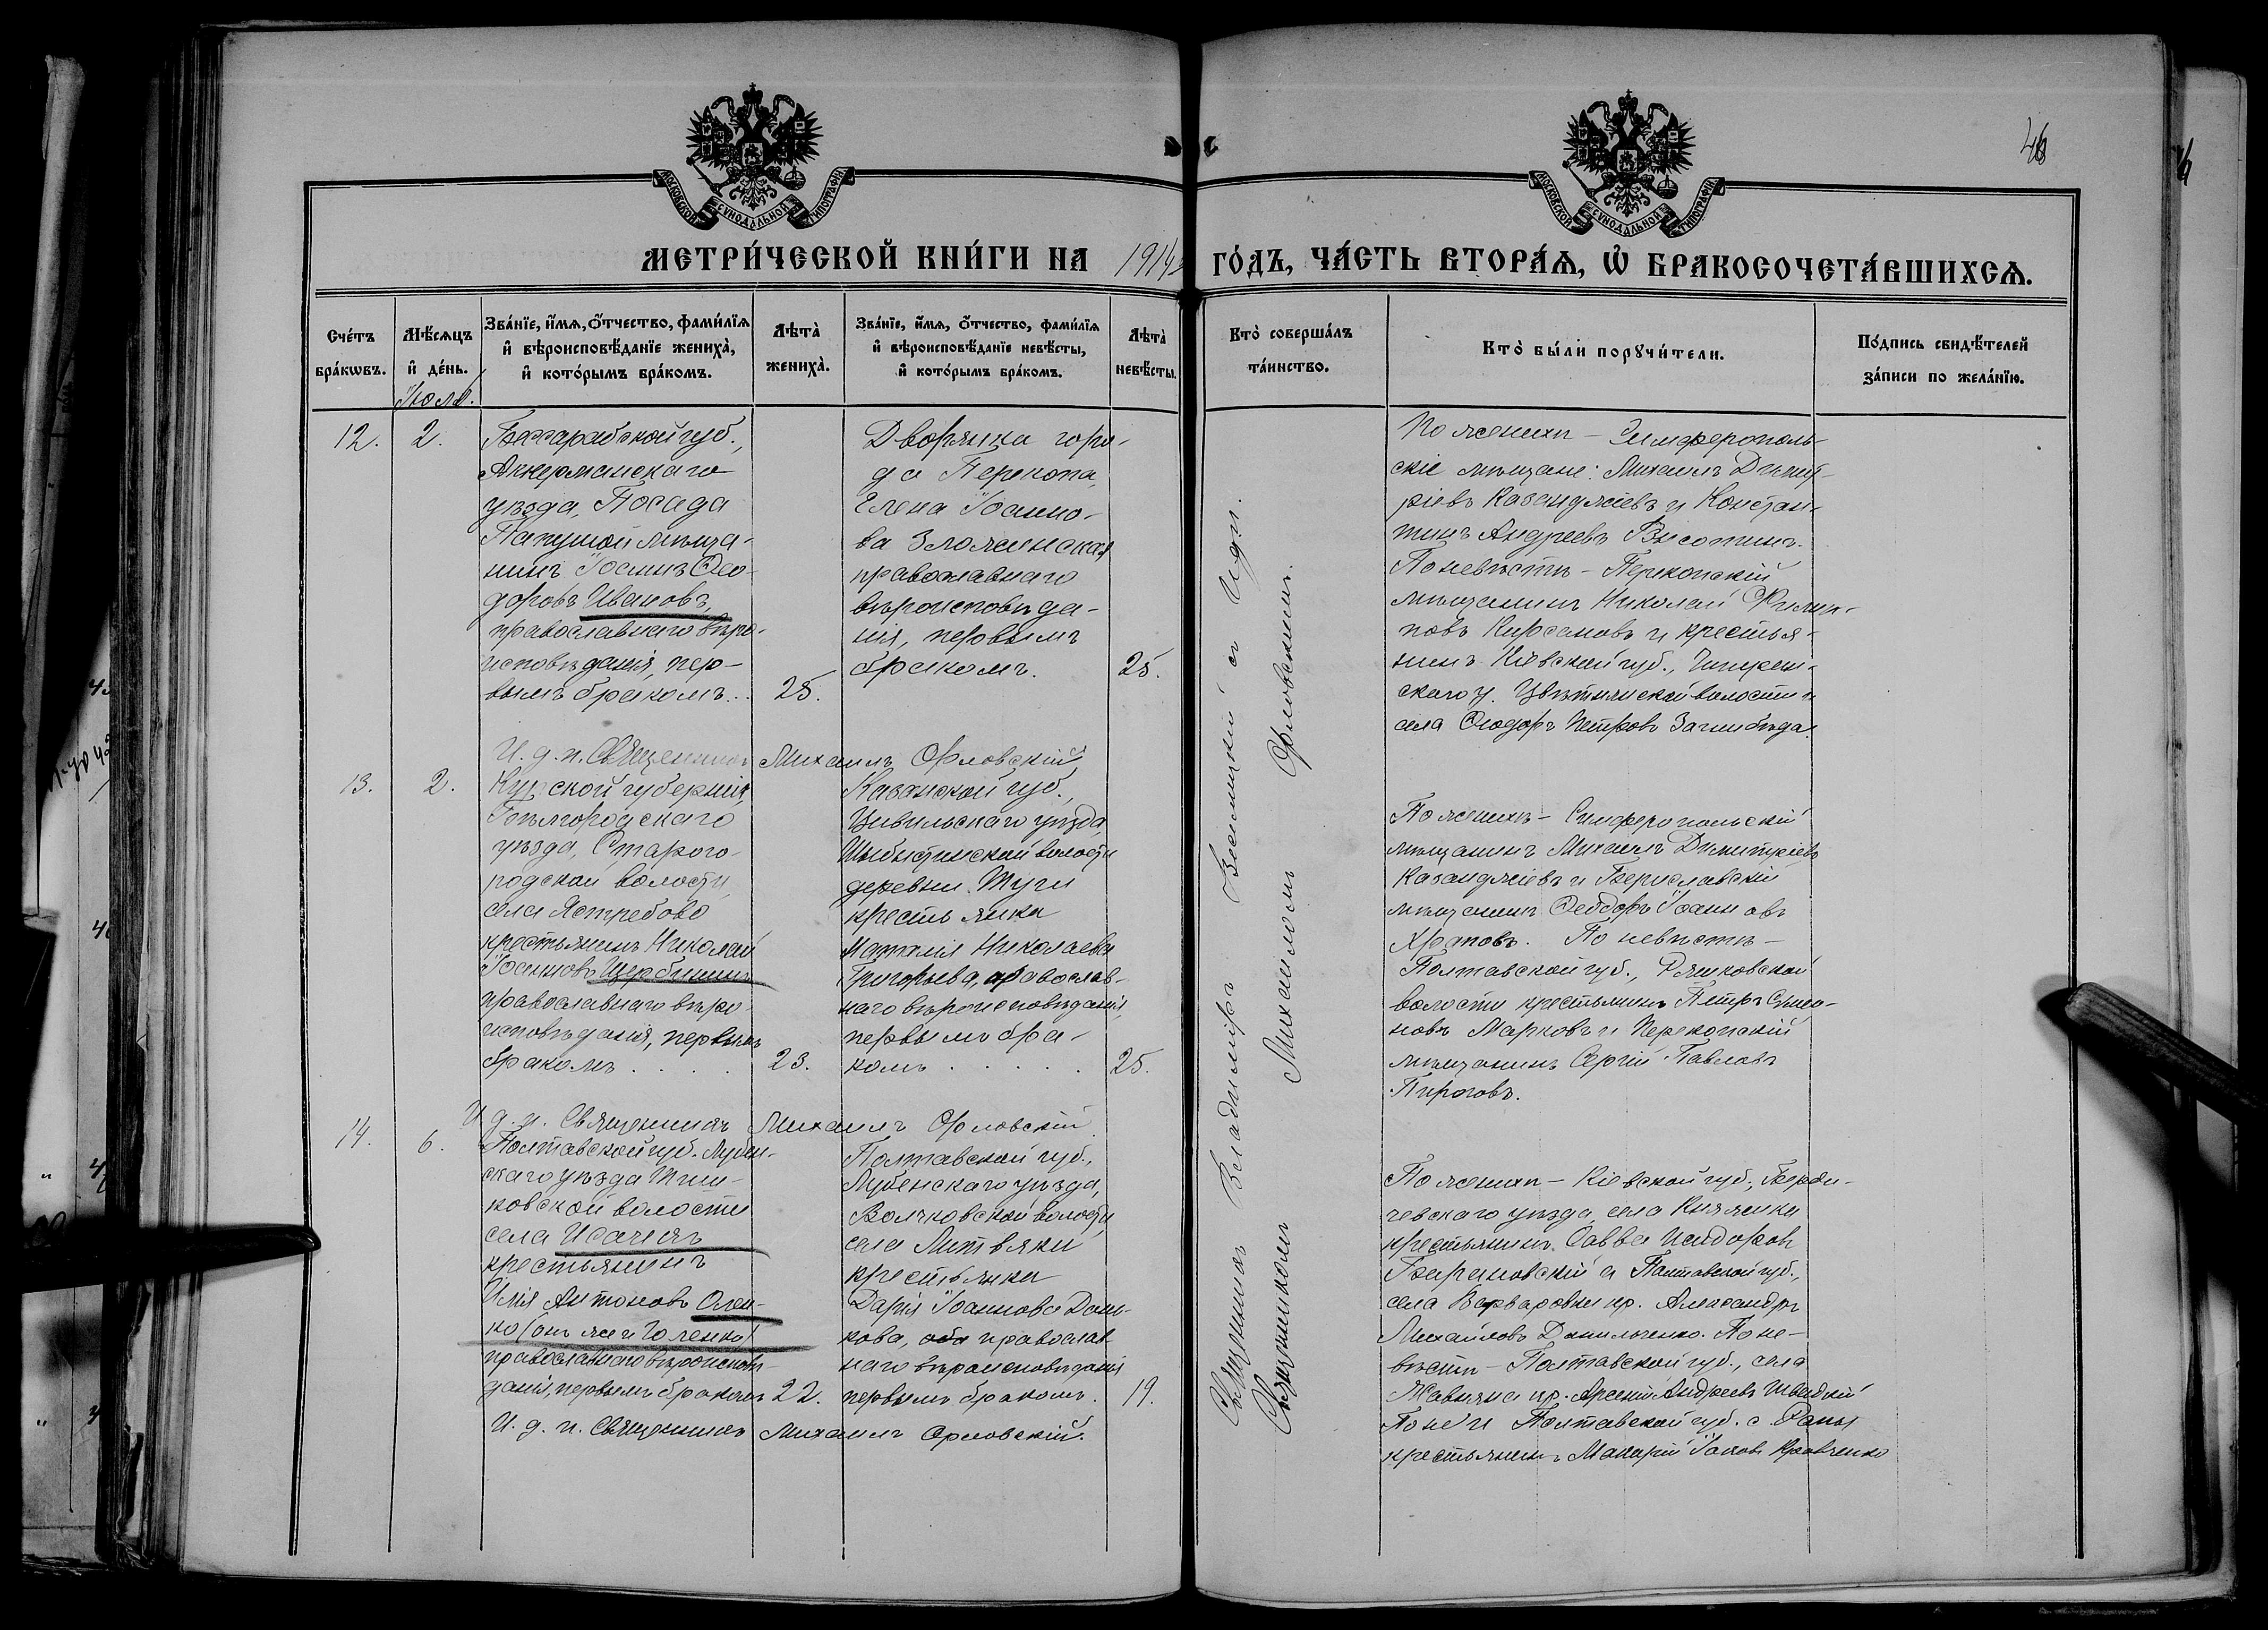 46
МОСКОВСКОЙ СУНОДАЛЬНОЙ ТИПОГРАФІИ
МОСКОВСКОЙ СУНОДАЛЬНОЙ ТИПОГРАФІИ
МЕТРИ́ЧЕСКОЙ КНИ́ГИ НА 1914 ГО́ДЪ, ЧА́СТЬ ВТОРА́Ѧ, Ѡ БРАКОСОЧЕТА́ВШИХСѦ.
Сче́тъ
бра́кωвъ.
Мѣ́сѧцъ
и҆ де́нь.
Іюль.
Зва́нїе, и҆́мѧ, ѻ҆́тчество, фами́лїѧ
и҆ вѣроисповѣ́данїе жениха̀,
и҆ кото́рымъ бра́комъ.
Лѣта̀
жениха̀.
Зва́нїе, и҆́мѧ, ѻ҆́тчество, фами́лїѧ
и҆ вѣроисповѣ́данїе невѣ́сты,
и҆ кото́рымъ бра́комъ.
Лѣта̀
невѣ́сты.
Кто̀ соверша́лъ
та́инство.
Кто̀ бы́ли порꙋчи́тели.
По́дпись свидѣ́телей
за́писи по жела́нїю.
12.
2.
Бессарабской губ.,
Аккерманскаго
уѣзда, Посада
Папушой мѣща-
нинъ Іоаннъ Ѳео-
доровъ Ивановъ,
православнаго вѣро-
исповѣданія, пер-
вымъ бракомъ..
25.
Дворянка горо-
да Перекопа,
Елена Іоанно-
ва Зложинская
православнаго
вѣроисповѣда-
нія, первымъ
бракомъ.
25.
По женихѣ - Симферополь-
скіе мѣщане: Михаилъ Димит-
ріевъ Казанджіевъ и Констан-
тинъ Андреевъ Високинъ.
По невѣстѣ - Перекопскій
мѣщанинъ Николай Филип-
повъ Кирсановъ и крестья-
нинъ Кіевской губ., Чигирин-
скаго у. Цвѣтнянской волости и
села Ѳеодоръ Петровъ Загнибѣда.
И. д. п. Священникъ Михаилъ Орловскій
13.
2.
Курской губерніи,
Бѣлгородскаго
уѣзда, Старого-
родской волости,
села Ястребово
крестьянинъ Николай
Іоанновъ Щербининъ
православнаго вѣро-
исповѣданія, первымъ
бракомъ . . . .
23.
Казанской губ.,
Цивильскаго уѣзда,
Шибылгинской волости
деревни Туги
крестьянка
Наталія Николаева
Григорьева, православ-
наго вѣроисповѣданія,
первымъ бра-
комъ . . . . .
25.
По женихѣ - Симферопольскій
мѣщанинъ Михаилъ Димитріевъ
Казанджіевъ и Бериславскій
мѣщанинъ Ѳеодоръ Іоанновъ
Храповъ. По невѣстѣ -
Полтавской губ., Рашковской
волости крестьянинъ Петръ Симо-
новъ Марковъ и Перекопскій
мѣщанинъ Сергій Павловъ
Пироговъ.
И. д. п. Священникъ Михаилъ Орловскій
14.
6.
Полтавской губ. Лубен-
скаго уѣзда Тиш-
ковской волости
села Исачекъ
крестьянинъ
Илія Антоновъ Олен-
ко (онъ же и Голенко)
православнаго вѣроисповѣ-
данія, первымъ бракомъ
22.
Полтавской губ.,
Лубенскаго уѣзда,
Волчковской волости
села Литвяки
крестьянка
Дарія Іоаннова Дани-
кова, оба православ
наго вѣроисповѣданія
первымъ бракомъ.
19.
По женихѣ - Кіевской губ., Берди-
чевскаго уѣзда, села Княжики
крестьянинъ Савва Исидоровъ
Барановскій и Полтавской губ.,
села Варваровки кр. Александръ
Михайловъ Данильченко. По не-
вѣстѣ - Полтавской губ., села
кр. Арсеній Андреевъ Швидкій
Полтавской губ. с.
крестьянинъ Макарій Іаковъ Кравченко
И. д. п. Священникъ Михаилъ Орловскій.
Священникъ Владиміръ Веселицкій с И. д. п.
Священникомъ Михаиломъ Орловскимъ.